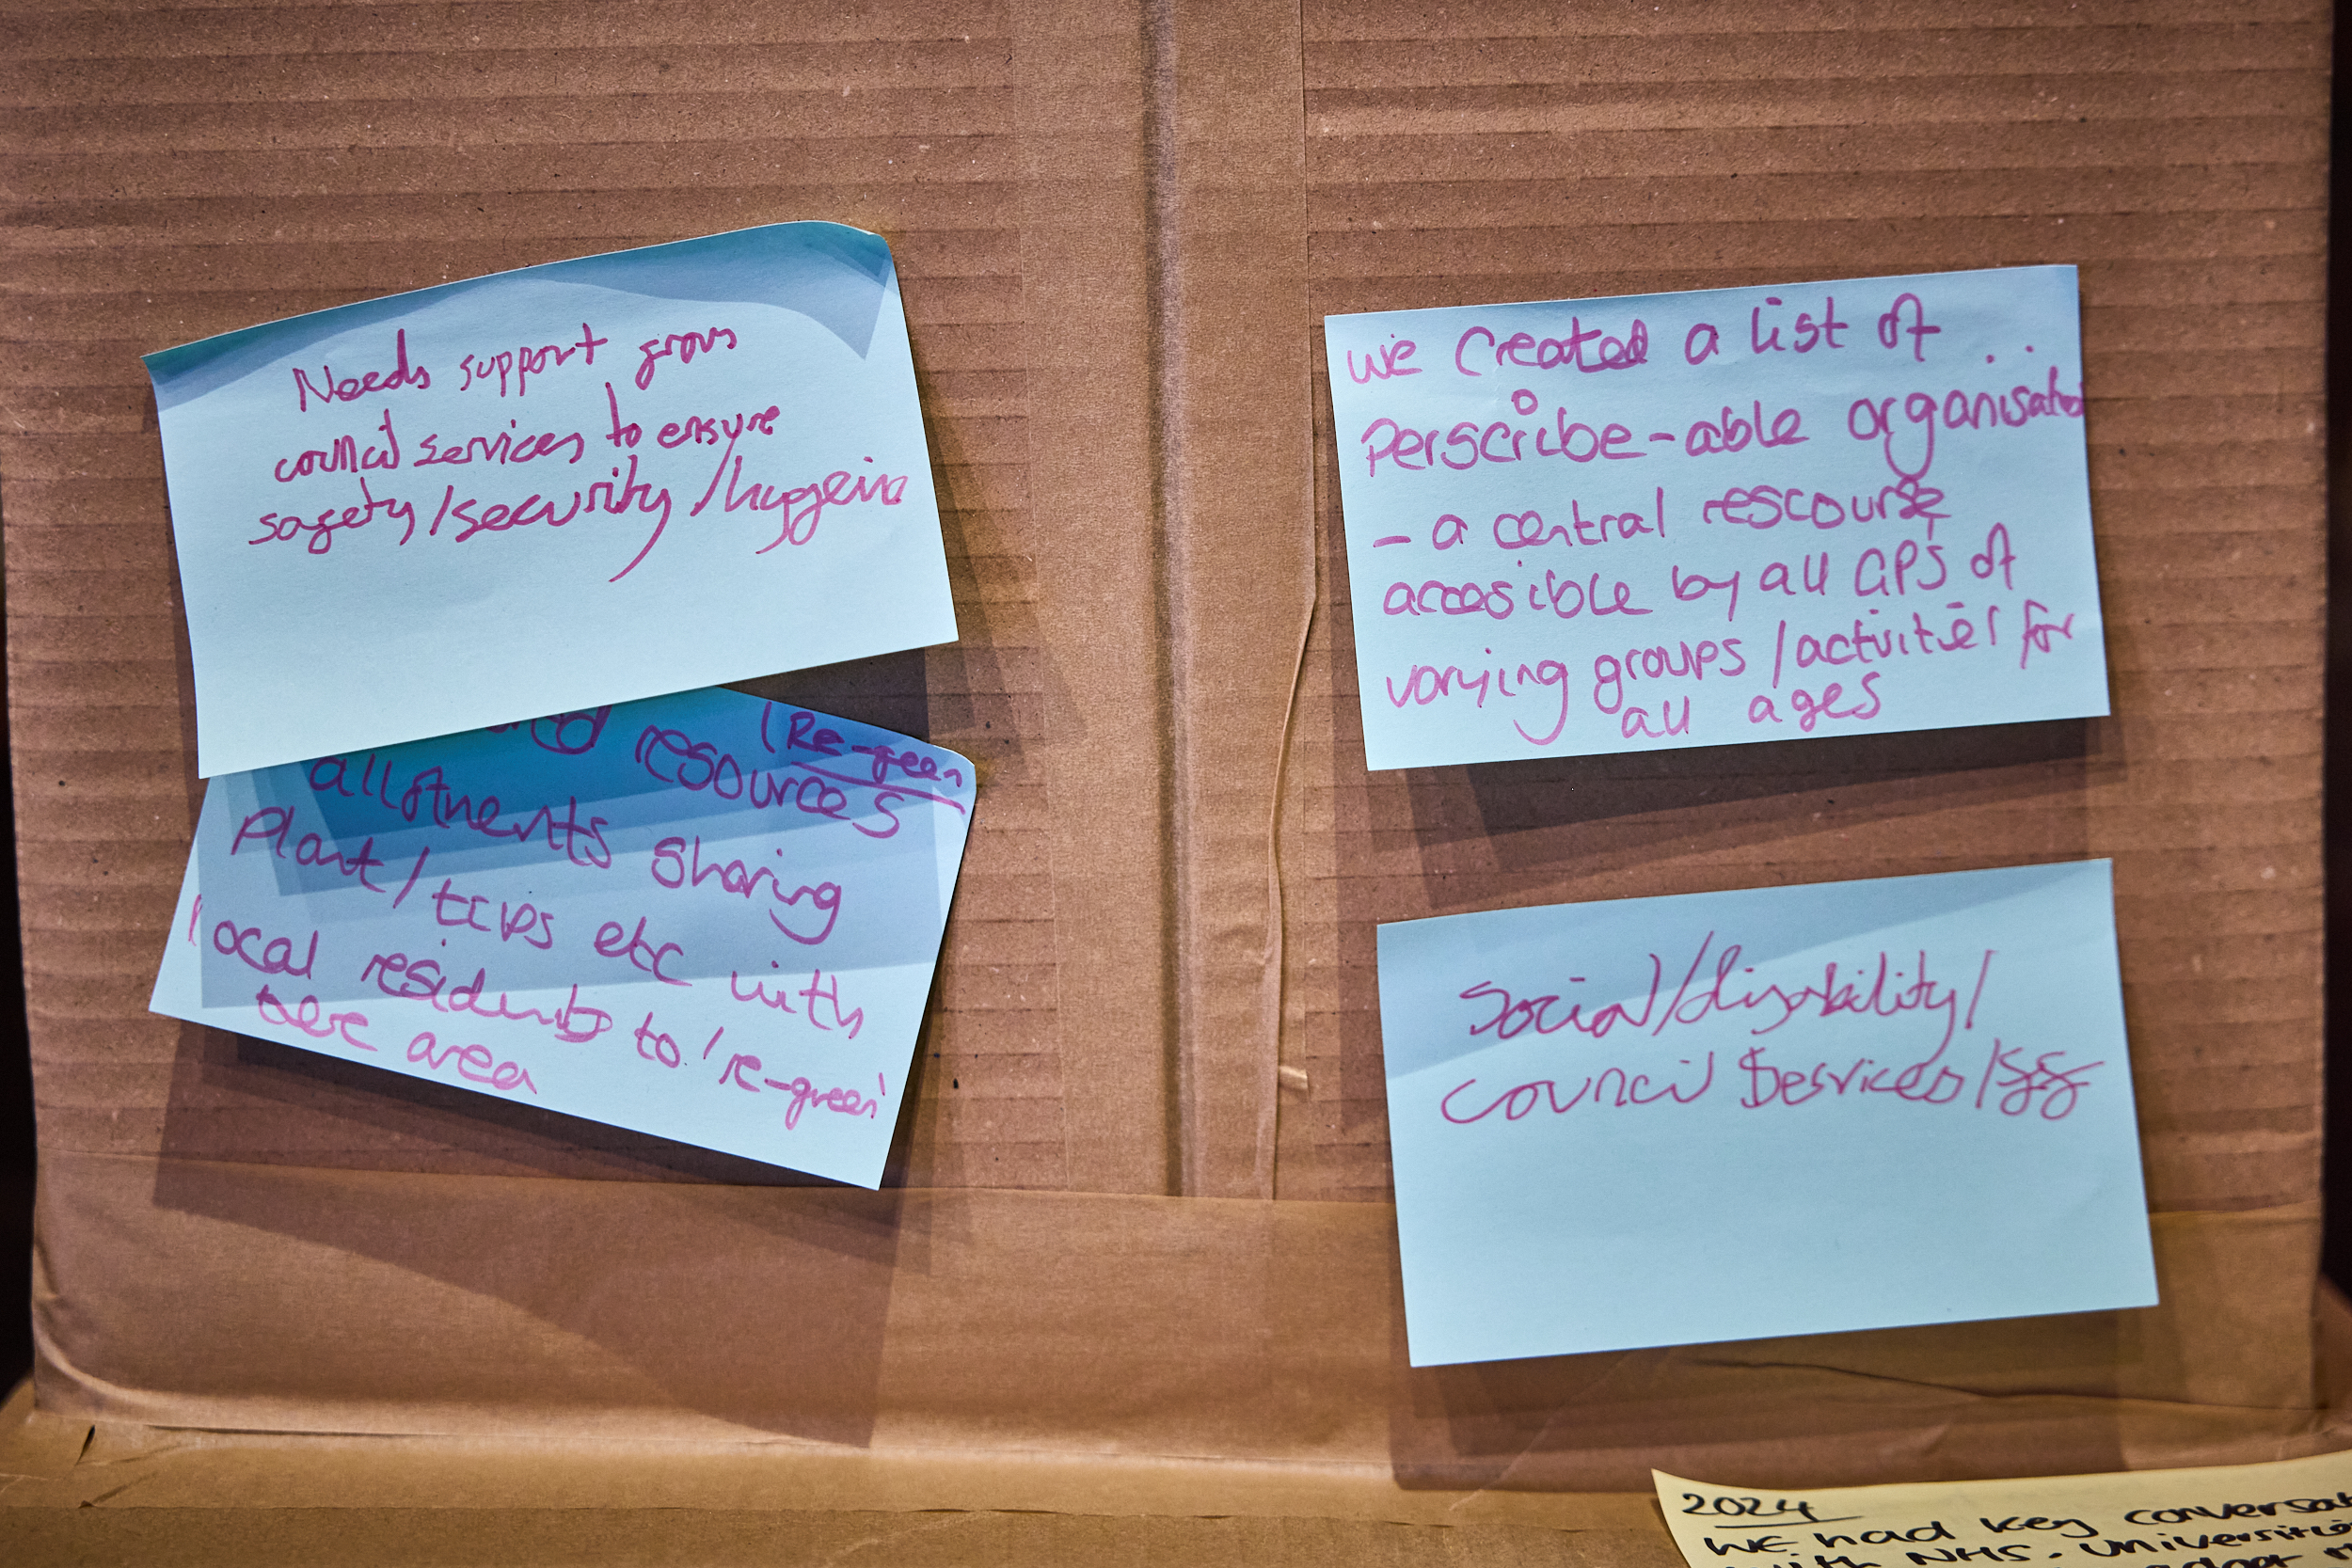 Needs support from
council services to ensure
safety/security/hygeine
resources
(Re-green
allotments sharing
Plant/tcips etc with
local residents to 're-green'
there area
we created a list of
Perscribe-able organisations
- a central rescourse
accesible by all GP's of
varying groups/activities for
all ages
Social/disability/
Council Services/
2024
WE had key conversat
with NHS, Universitie